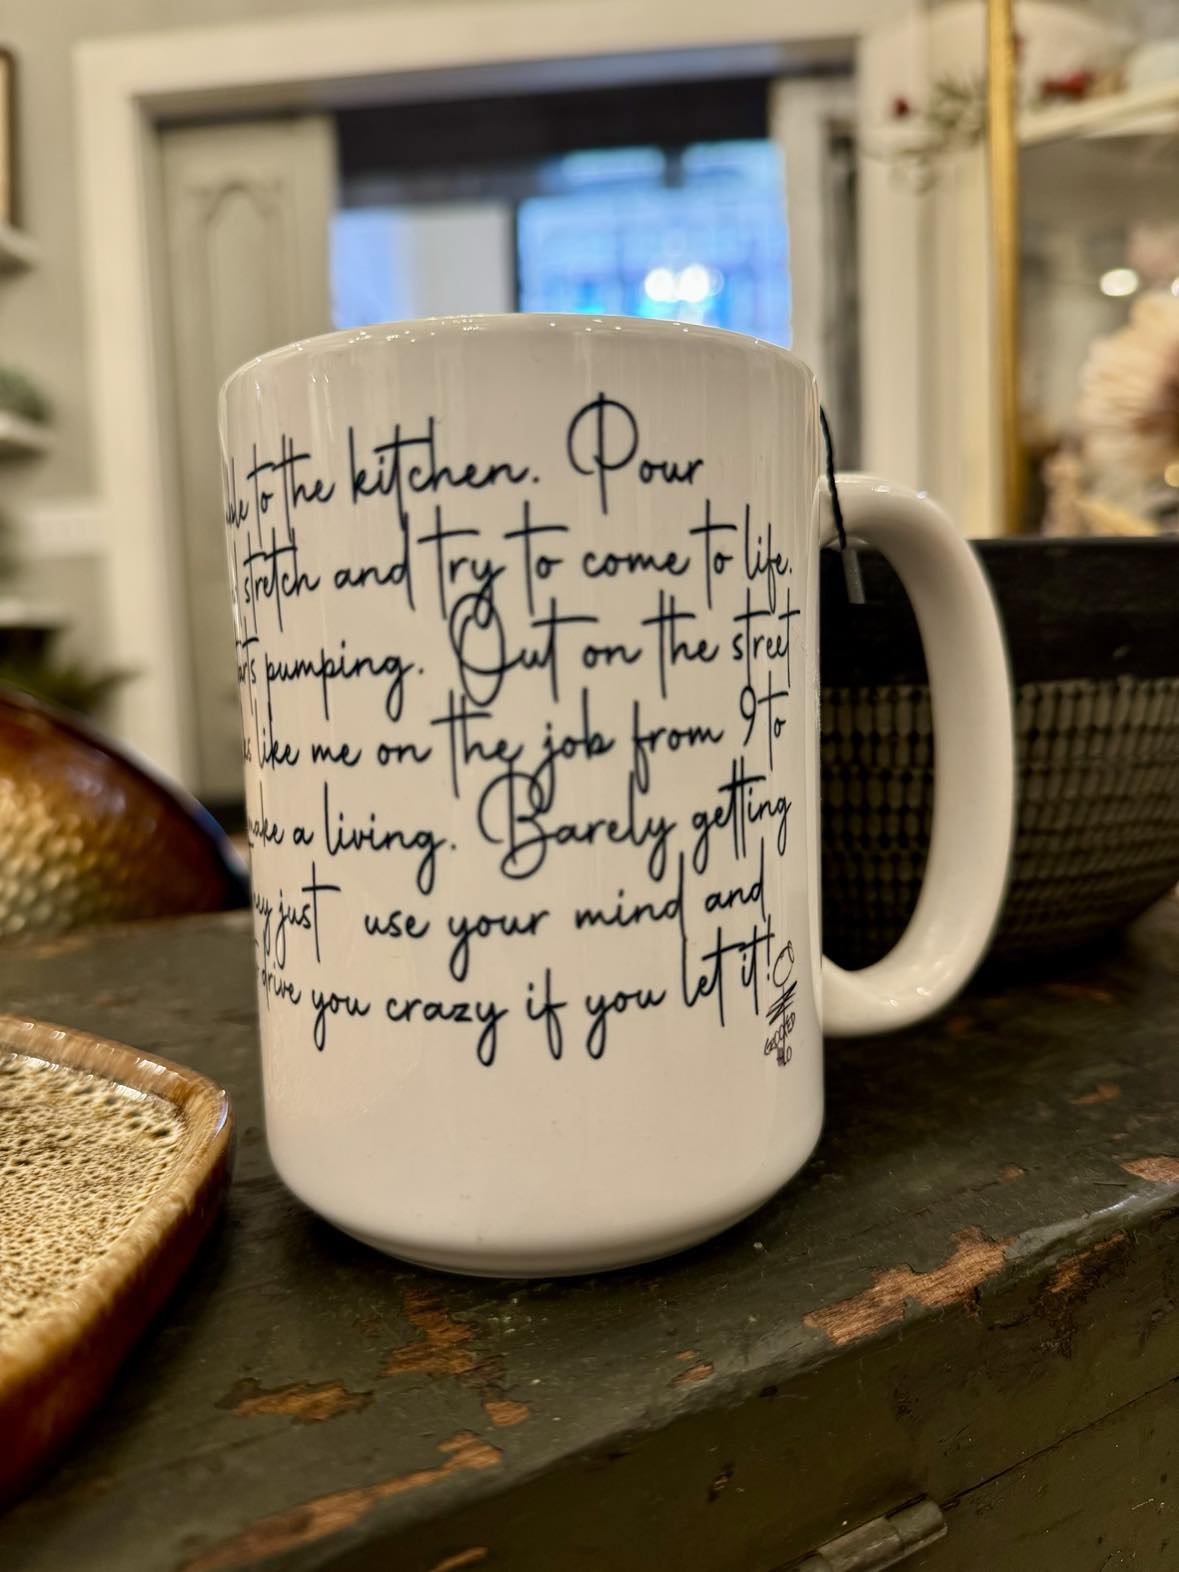 to the kitchen. Pour
stretch and try to come to life.
pumping. Out on the street
like me on the job from 9 to
make a living. Barely getting
just use your mind and
drive you crazy if you let it!
CROOKED
HALO